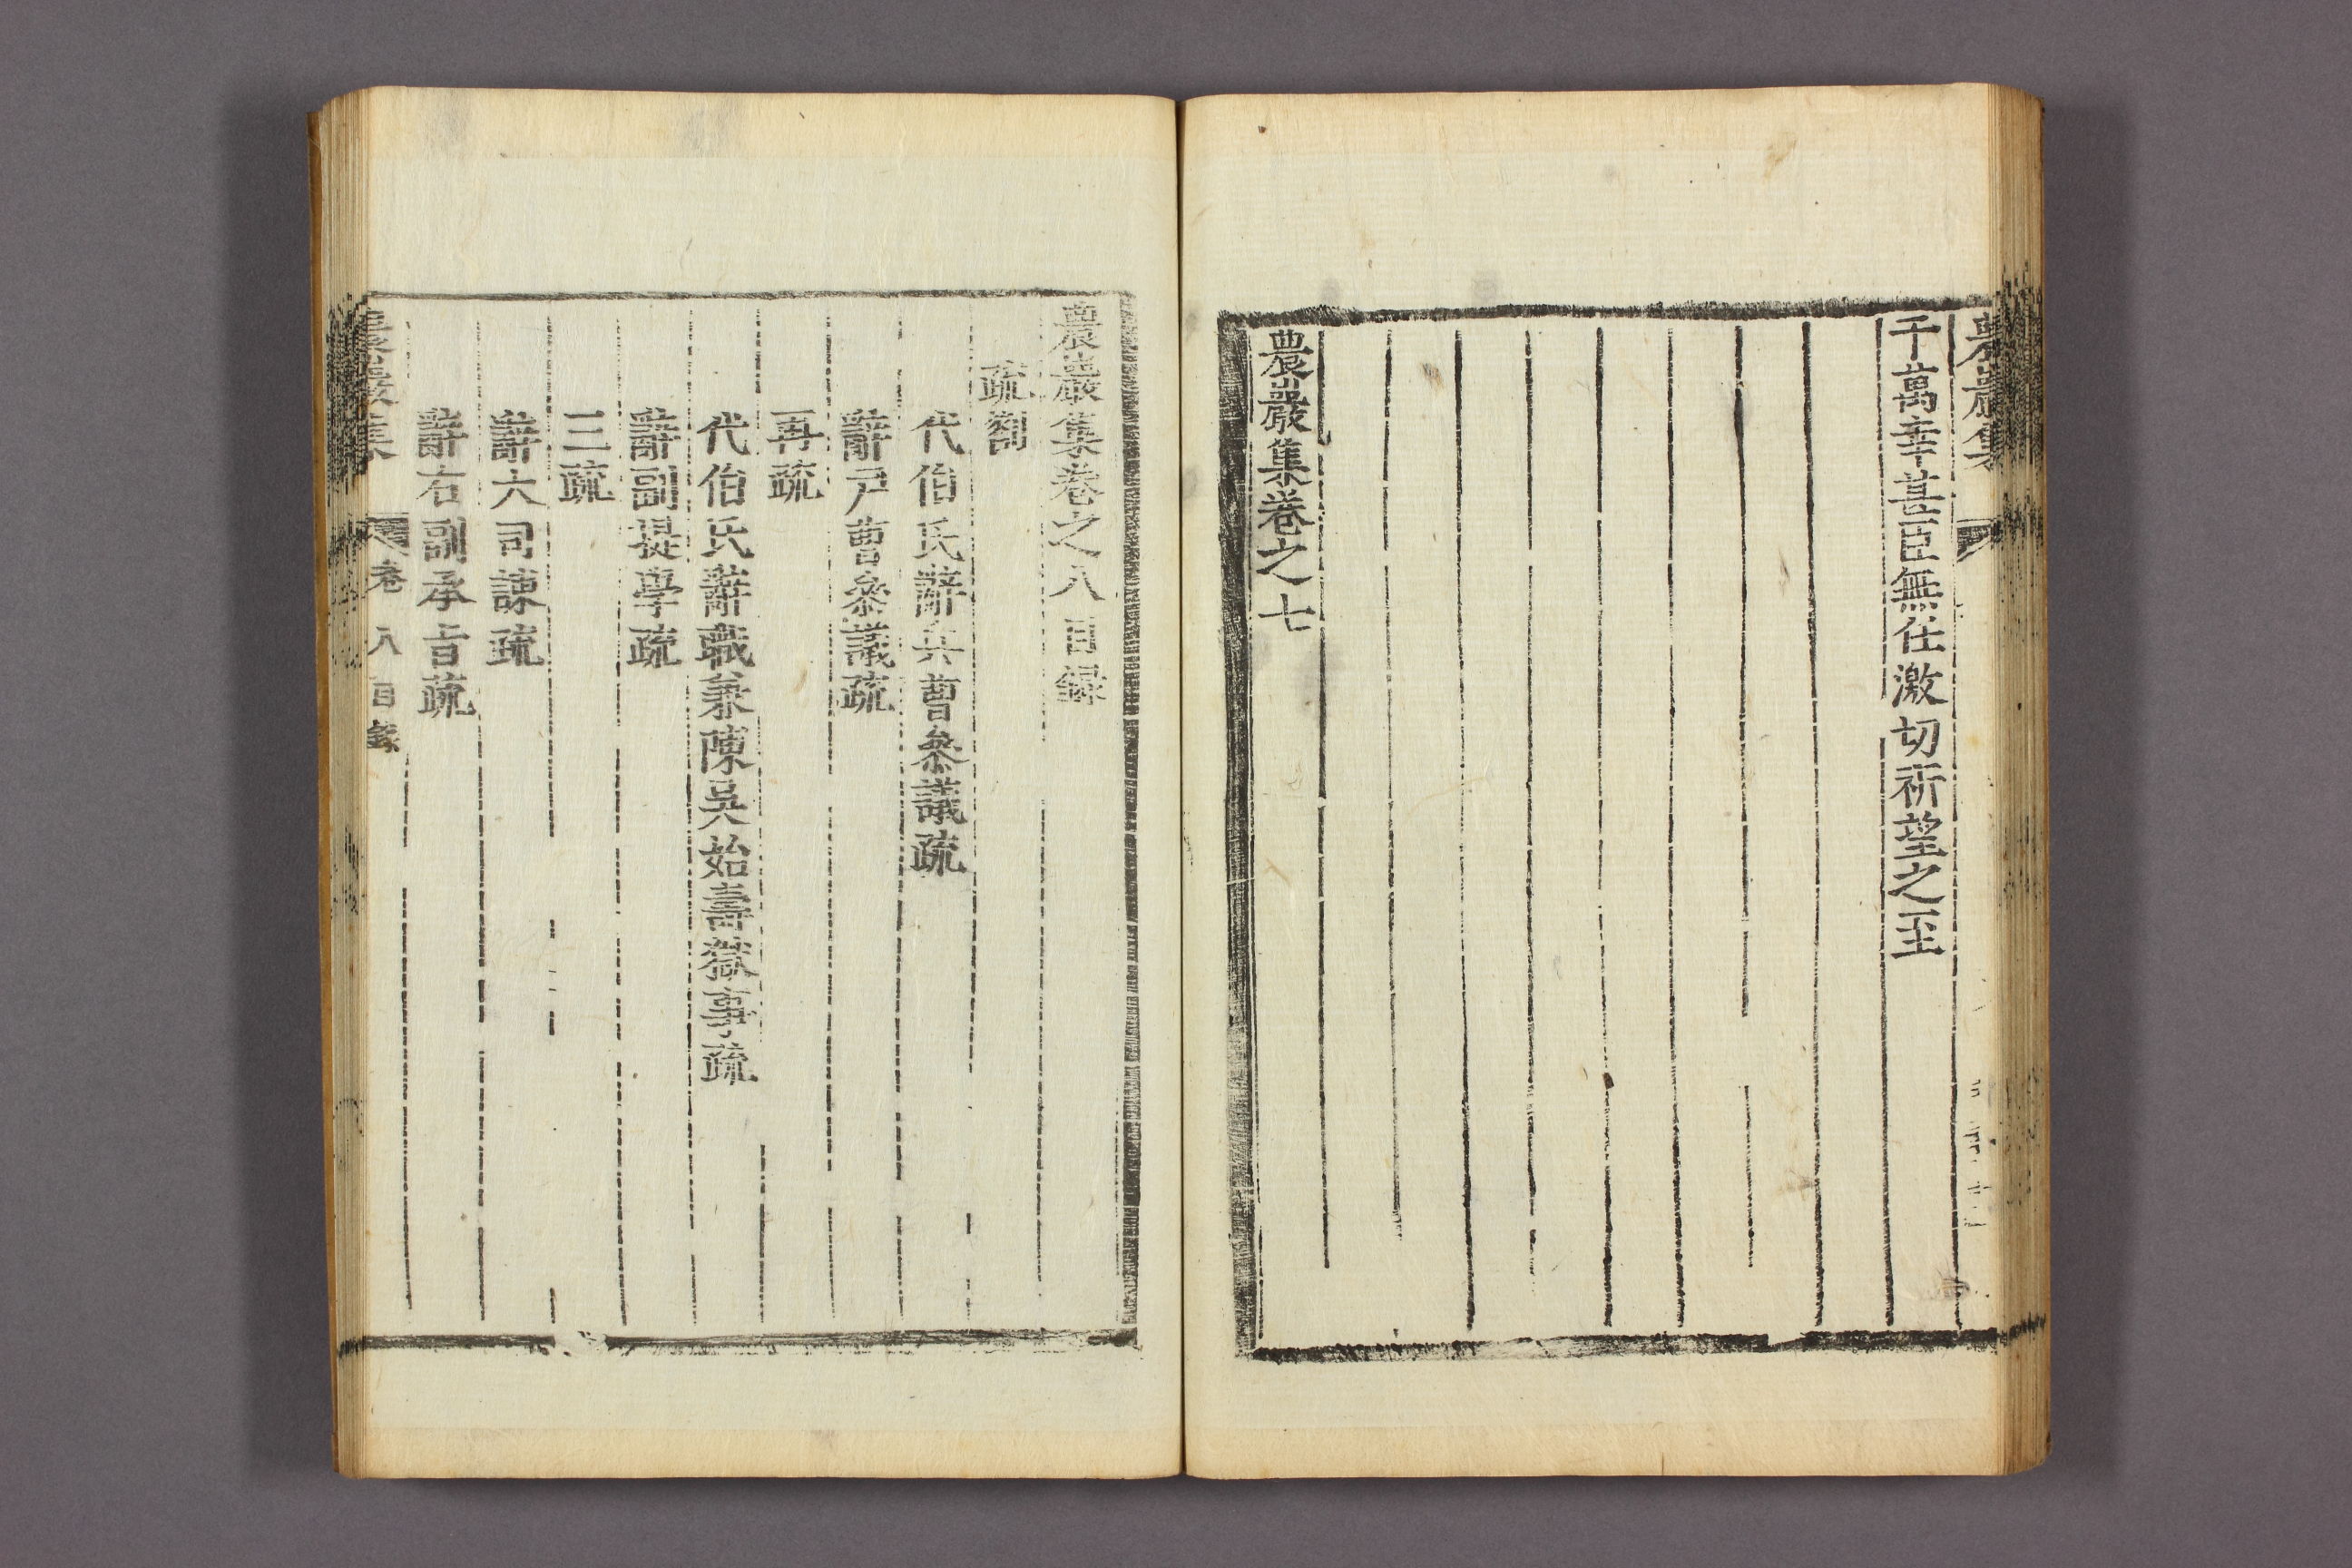 農巖集
千萬幸甚臣無任激切祈望之至
農巖集卷之七
農巖集卷之八目錄
疏劄
代伯氏辭兵曹叅議疏
辭戶曹叅議疏
再疏
代伯氏辭職兼陳吳始壽獄事疏
辭副提學疏
三疏
辭大司諫疏
辭右副承旨疏
農巖集 卷八目錄